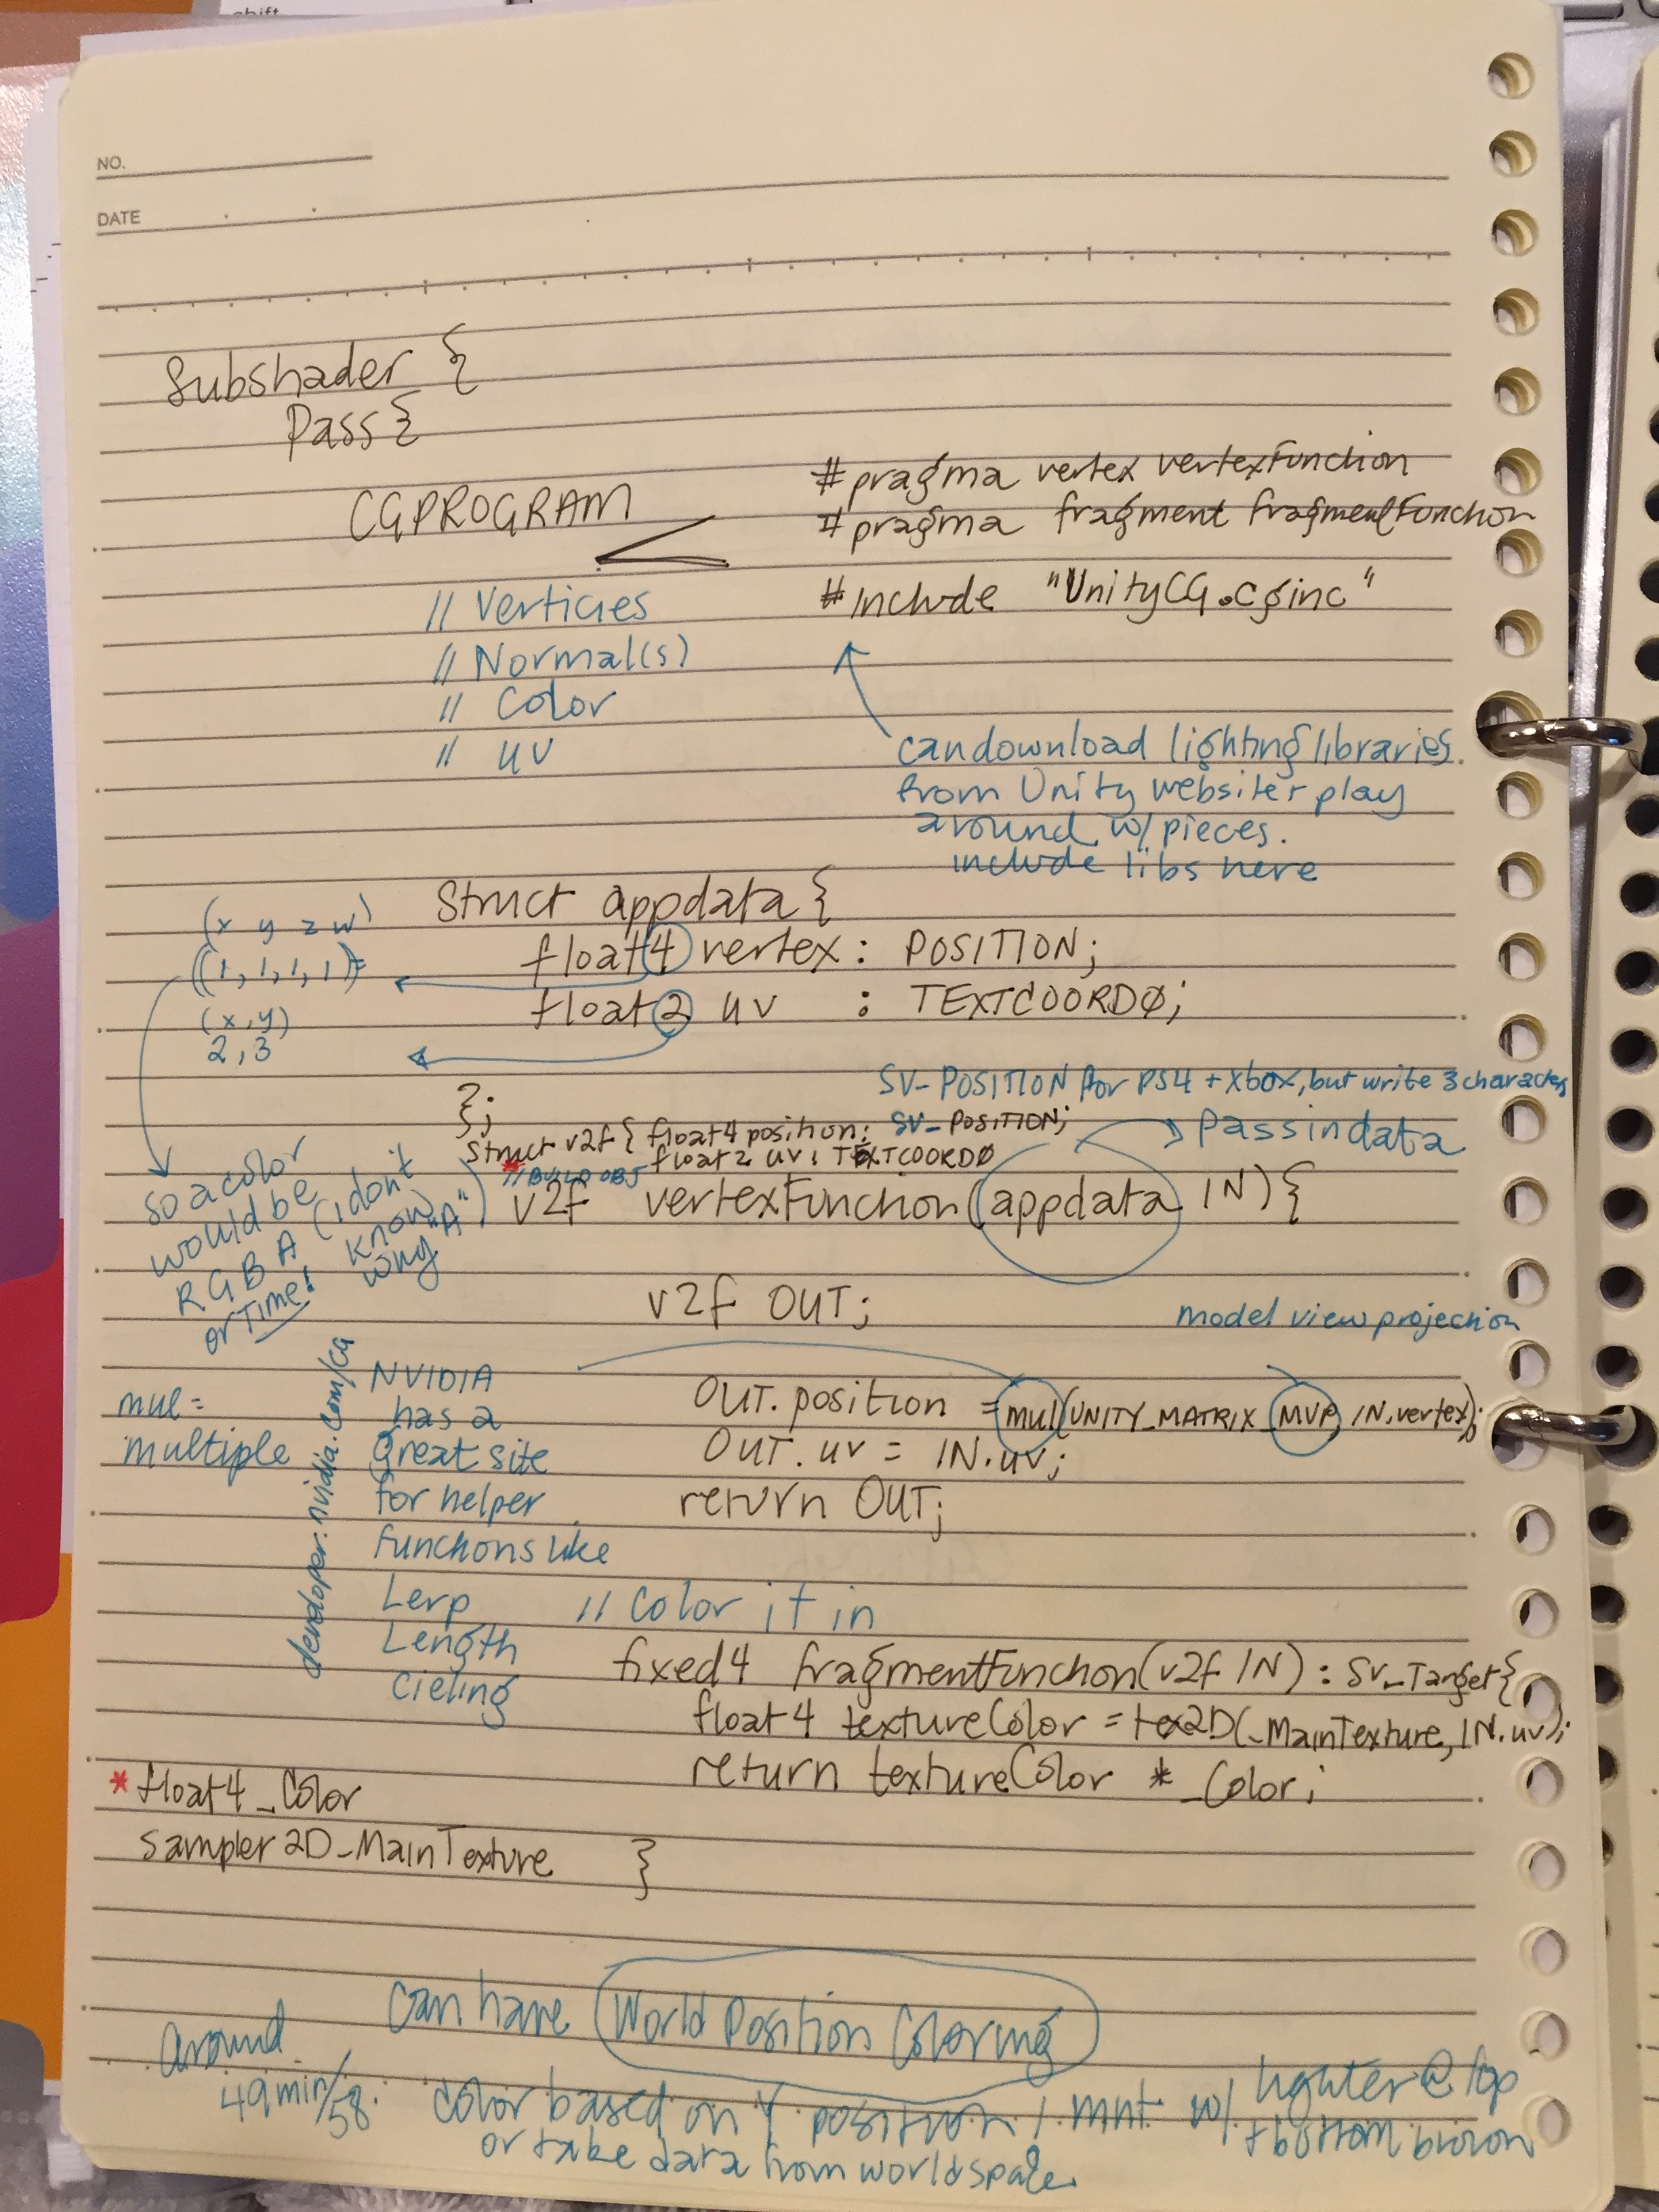 shift
NO.
DATE
Subshader {
Pass {
CGPROGRAM
#pragma vertex vertexFunction
#pragma fragment fragmentFunction
#include "UnityCG.cginc"
// Verticies
// Normal(s)
// Color
// uv
can download lighting libraries
from Unity website + play
around w/ pieces.
include libs here
Struct appdata {
float4 vertex : POSITION;
float2 uv : TEXTCOORD0;
};
(x y z w)
(1, 1, 1, 1)
(x, y)
2, 3
so a color
would be
RGBA (i don't
know
why "A")
or TIME!
SV_POSITION for PS4 + Xbox, but write 3 characters
Struct v2f { float4 position: SV_POSITION;
float2 uv: TEXTCOORD0
* // BUILD OBJ
Pass in data
v2f vertexFunction(appdata IN) {
v2f OUT;
model view projection
OUT.position = mul(UNITY_MATRIX_MVP, IN.vertex);
OUT.uv = IN.uv;
return OUT;
mul =
multiple
developer.nvidia.com/cg
NVIDIA
has a
Great site
for helper
functions like
Lerp
Length
Cieling
// Color it in
fixed4 fragmentFunction(v2f IN) : SV_Target {
float4 textureColor = tex2D(_MainTexture, IN.uv);
return textureColor * _Color;
* float4 _Color
sampler2D _MainTexture
}
can have World Position Coloring
around
49 min/58.
color based on Y position / mnt. w/ lighter @ top
+ bottom brown
or take data from worldspace